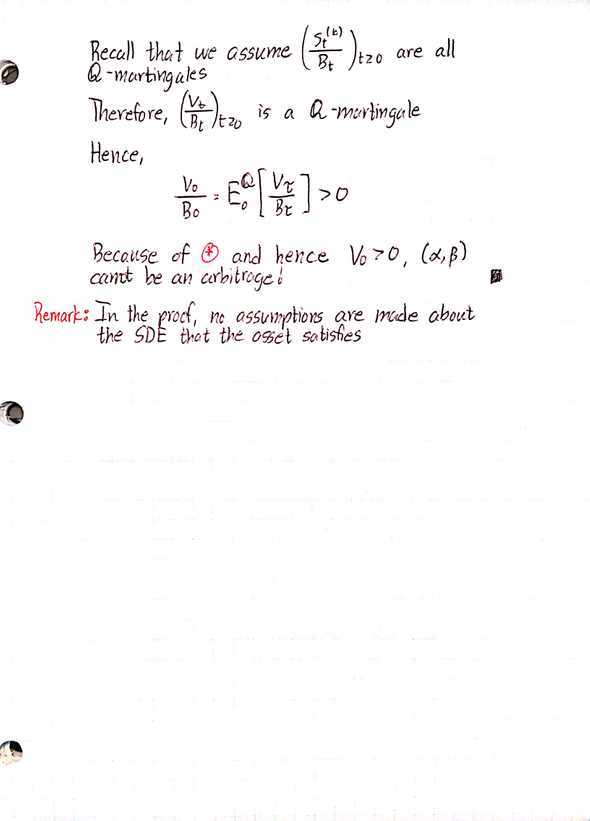 Recall that we assume (S_t^(t)/B_t)_t≥0 are all
Q-martingales
Therefore, (V_t/B_t)_t≥0 is a Q-martingale
Hence,
V_0/B_0 = E_0^Q[V_τ/B_τ] >0
Because of ⊛ and hence V_0>0, (α,β)
can't be an arbitrage!
Remark: In the proof, no assumptions are made about
the SDE that the asset satisfies